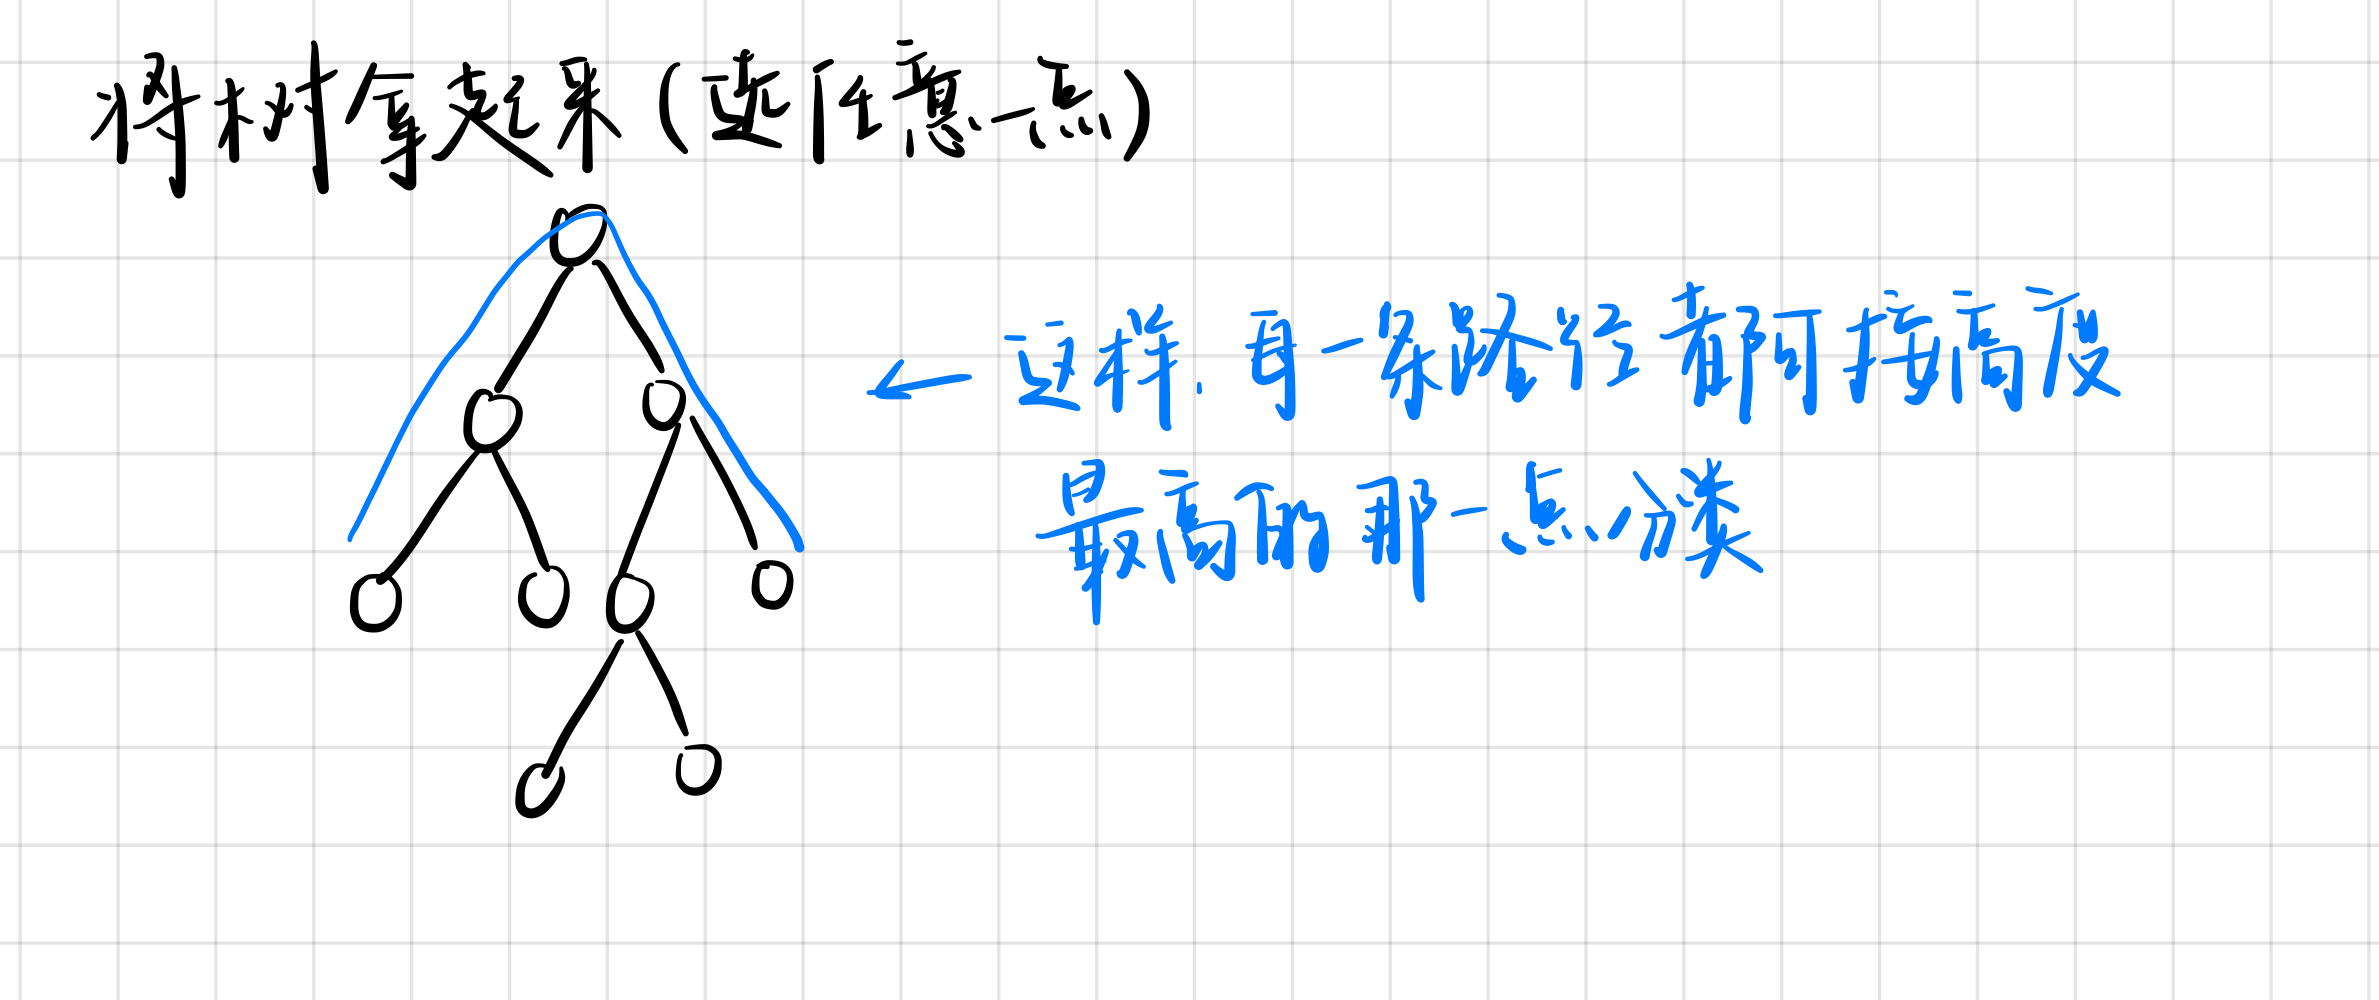 将树拿起来(选任意一点)
这样.每一条路径都可按高度
最高的那一点分类